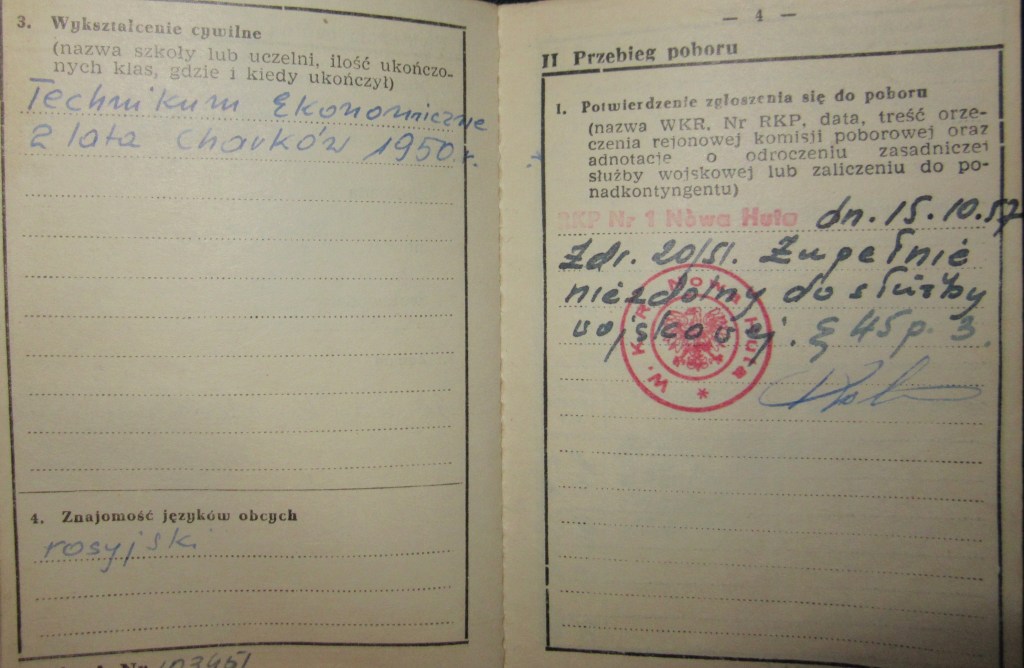 3. Wykształcenie cywilne
(nazwa szkoły lub uczelni, ilość ukończo-
nych klas, gdzie i kiedy ukończył)
Technikum Ekonomiczne
2 lata Charków 1950 r.
4. Znajomość języków obcych
rosyjski
Nr 103451
— 4 —
II Przebieg poboru
1. Potwierdzenie zgłoszenia się do poboru
(nazwa WKR, Nr RKP, data, treść orze-
czenia rejonowej komisji poborowej oraz
adnotacje o odroczeniu zasadniczej
służby wojskowej lub zaliczeniu do po-
nadkontyngentu)
RKP Nr 1 Nowa Huta dn. 15.10.57
Zdr. 20/51. Zupełnie
niezdolny do służby
wojskowej. § 45 p. 3.
W. K. R. Nowa Huta *